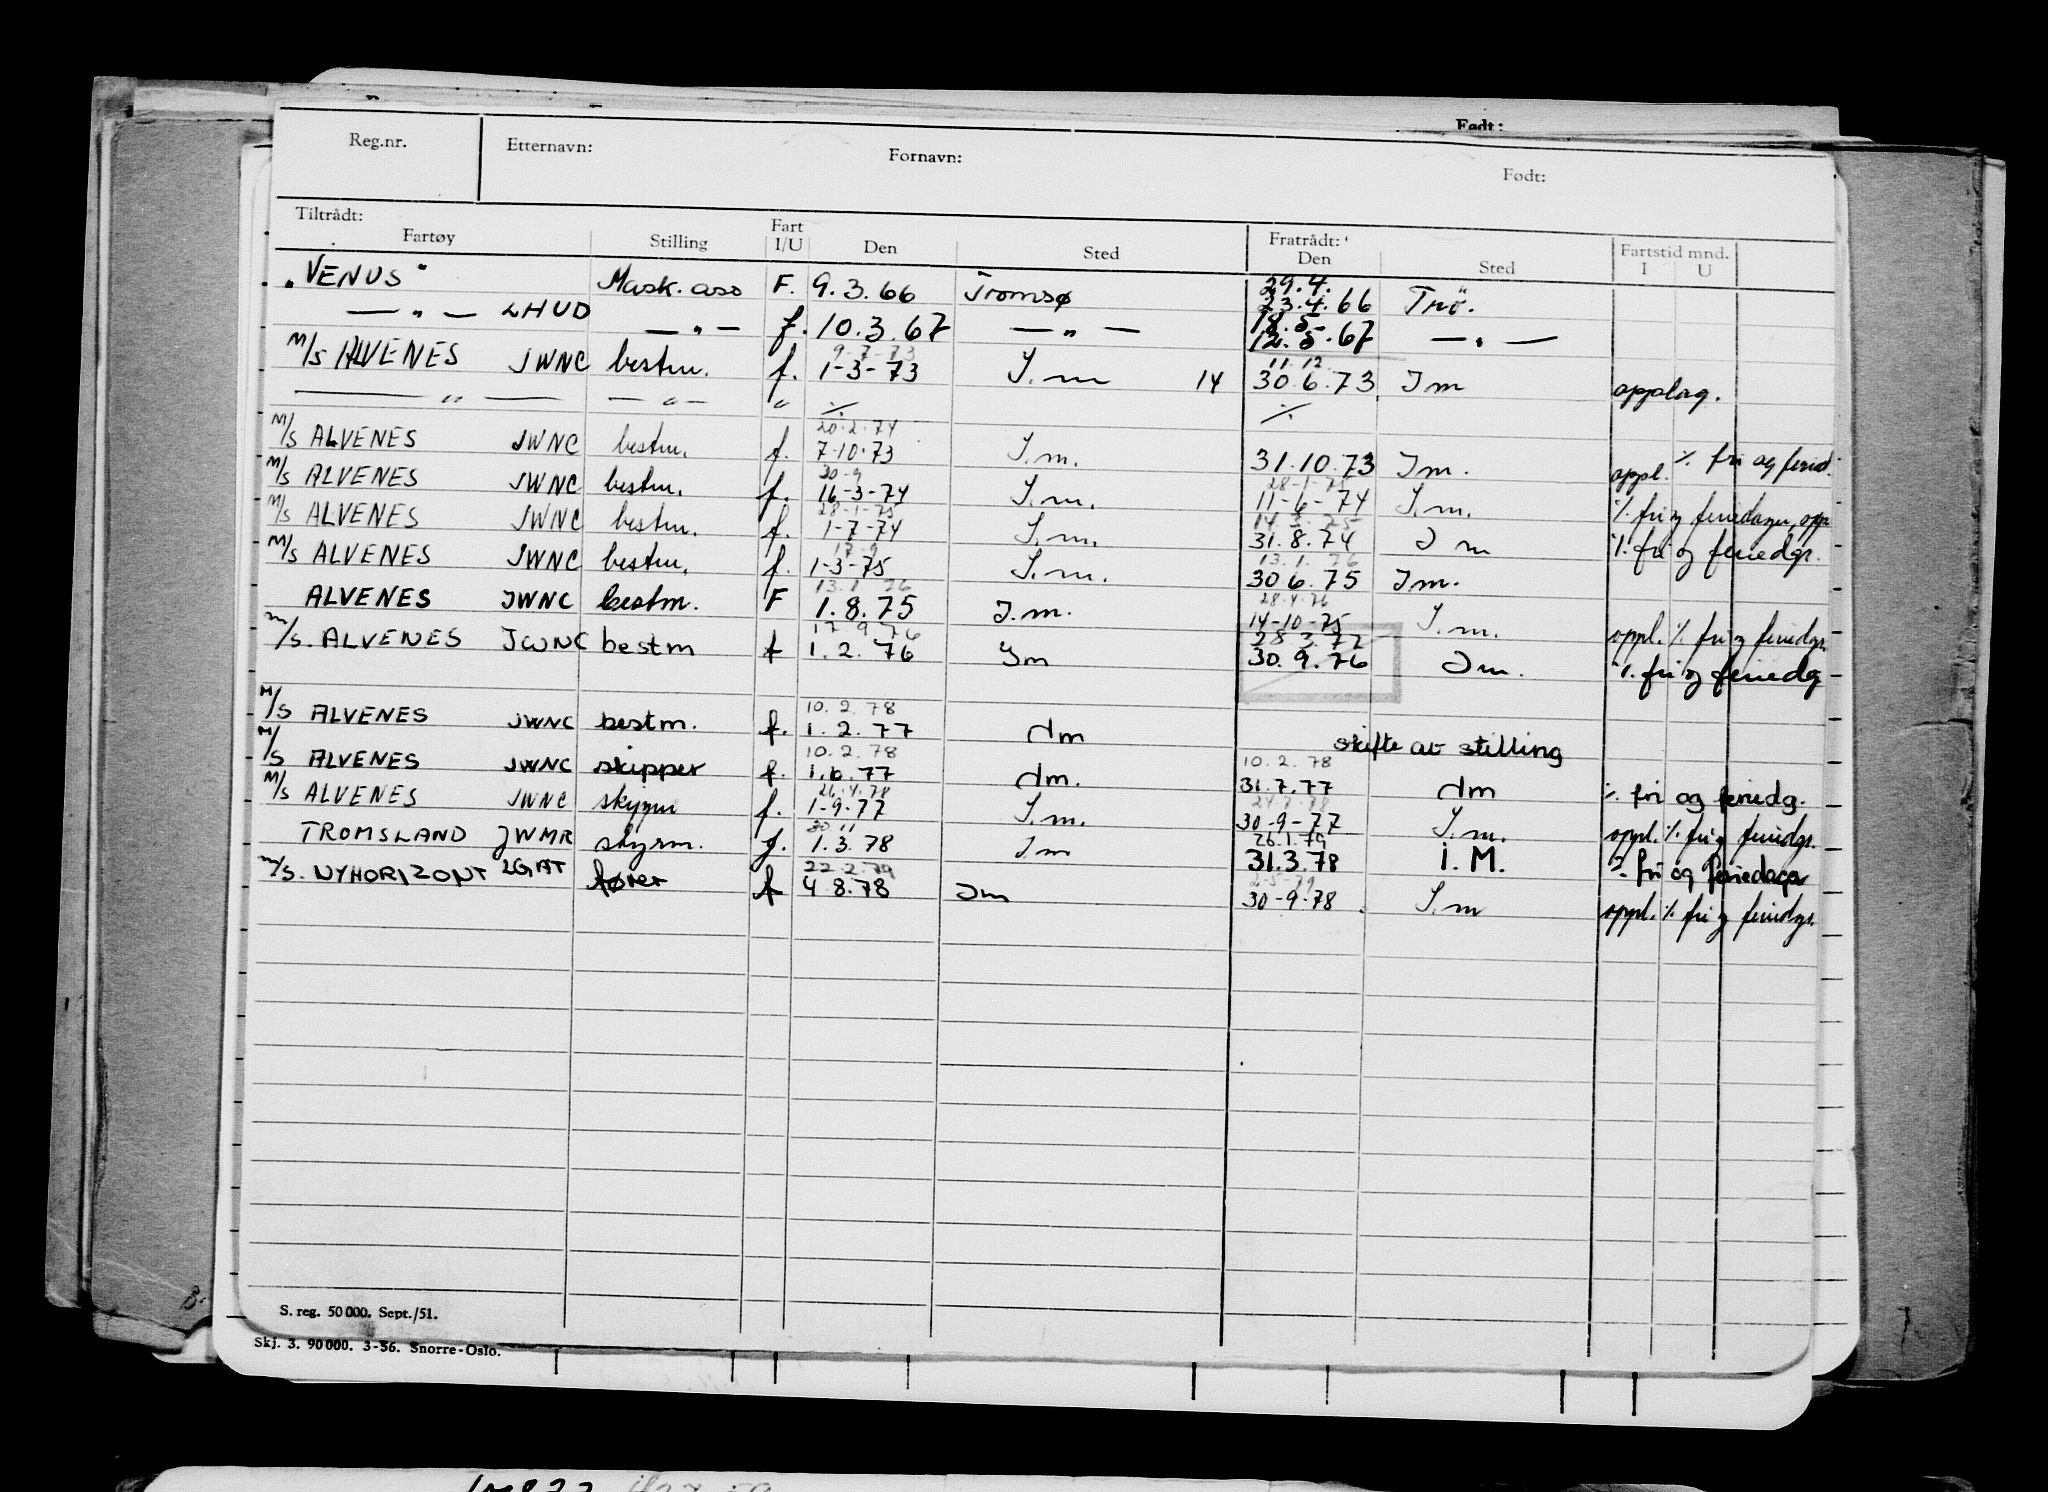 Født:
Reg.nr. Etternavn: Fornavn: Født:
Tiltrådt: Fartøy Stilling Fart I/U Den Sted Fratrådt: Den Sted Fartstid mnd. I U
29.4.
"VENUS" Mask. ass F. 9.3.66 Tromsø 23.4.66 Trø.
18.5
— " — LHUD — " — f. 10.3.67 — " — 12.5.67 — " —
9-7-73 11.12.
M/S ALVENES JWNC bestm. f. 1-3-73 I.m 14 30.6.73 Im opplag.
— " — — " — " ./. ./.
20.2.74
M/S ALVENES JWNC bestm. f. 7-10-73 I.m. 31.10.73 Im. oppl. ./. fri og feried.
30-9 28-1-75
M/S ALVENES JWNC bestm. f. 16-3-74 I.m. 11-6-74 I.m. ./. fri og feriedager, opp
28-1-75 14.3.75
M/S ALVENES JWNC bestm. f. 1-7-74 I.m. 31.8.74 I m ./. fri og feriedgr.
17-9 13.1.76
M/S ALVENES JWNC bestm. f. 1-3-75 I.m. 30.6.75 Im.
13.1.76 28.4.76
ALVENES JWNC bestm. F 1.8.75 I.m. 14-10-75 I.m. oppl. ./. fri og feriedgr.
17 9 76 28.3.77
m/s. ALVENES JWNC bestm f 1.2.76 Im 30.9.76 Im. ./. fri og feriedg
10.2.78
M/S ALVENES JWNC bestm. f. 1.2.77 Im skifte av stilling
10.2.78 10.2.78
M/S ALVENES JWNC skipper f. 1.6.77 Im. 31.7.77 Im ./. fri og feriedg.
26.4.78 24.7.78
M/S ALVENES JWNC f. 1-9-77 I.m. 30-9-77 I.m. oppl. ./. fri og feriedgr.
30 11 26.1.79
TROMSLAND JWMR styrm. f. 1.3.78 Im 31.3.78 I.M. ./. fri og feriedager
22.2.79 2-5-79
m/s. NYHORIZONT LGAT fører f 4.8.78 Im 30-9-78 I.m oppl. ./. fri og feriedgr.
S. reg. 50 000. Sept./51.
Skj. 3. 90 000. 3-56. Snorre-Oslo.